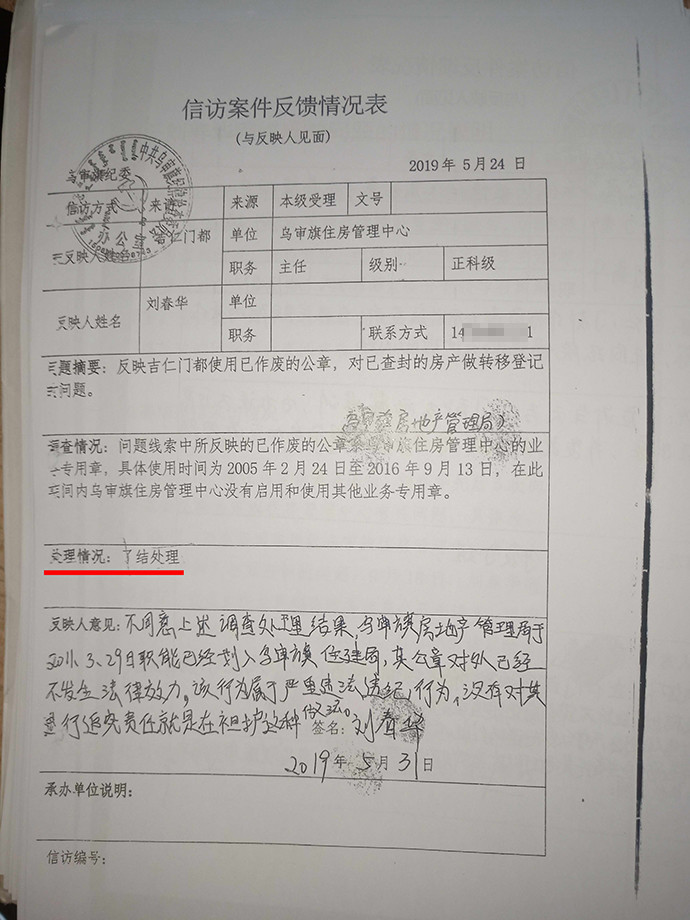 信访案件反馈情况表
(与反映人见面)
2019 年 5 月 24 日
乌审旗纪委
中共乌审旗
办公
信访方式 来 来源 本级受理 文号
反映人姓 仁门都 单位 乌审旗住房管理中心
职务 主任 级别 正科级
反映人姓名 刘春华 单位
职务 联系方式 14 1
题摘要：反映吉仁门都使用已作废的公章，对已查封的房产做转移登记
问题。
房地产管理局
查情况：问题线索中所反映的已作废的公章 乌审旗住房管理中心的业
专用章，具体使用时间为 2005 年 2 月 24 日至 2016 年 9 月 13 日，在此
间内乌审旗住房管理中心没有启用和使用其他业务专用章。
处理情况：了结处理
反映人意见：不同意上述调查处理结果，乌审旗房地产管理局于
2011.3.29日职能已经划入乌审旗住建局，其公章对外已经
不发生法律效力。该行为属于严重违法违纪行为，没有对其
进行追究责任就是在袒护这种做法。
签名：刘春华
2019 年 5 月 31 日
承办单位说明：
信访编号：